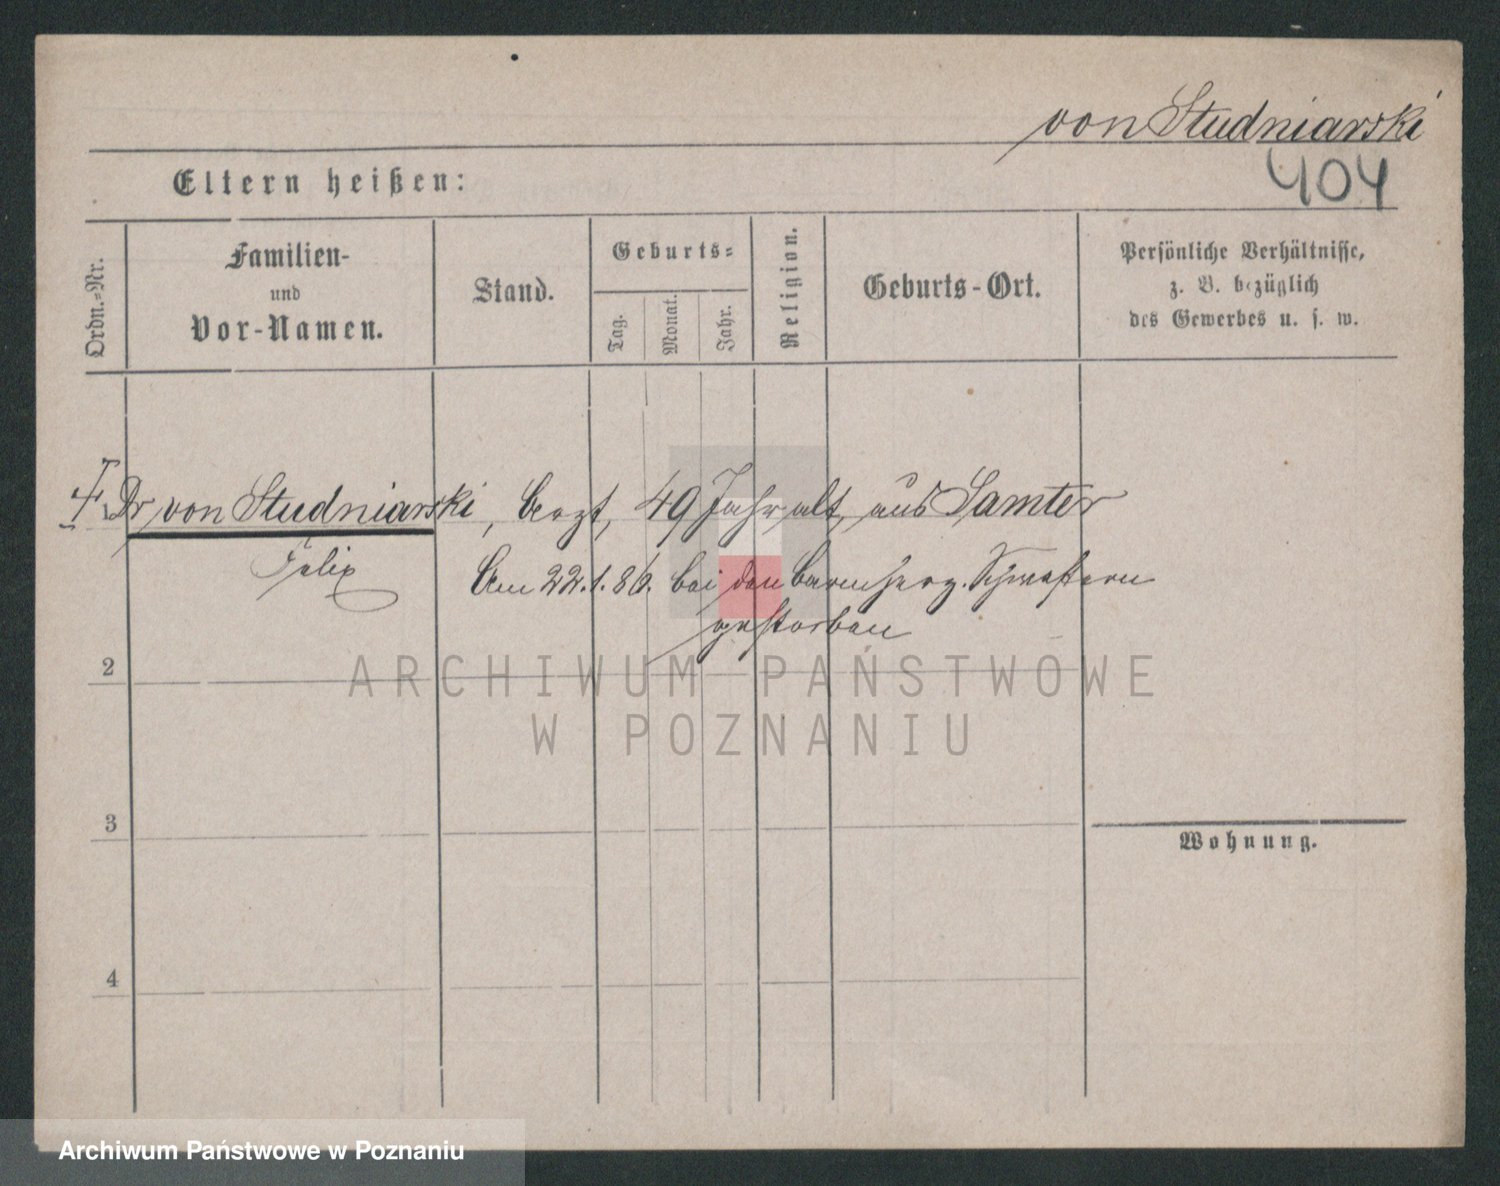 von Studniarski
404
Eltern heißen:
Ordn.-Nr.
Familien-
und
Vor-Namen.
Stand.
Geburts-
Tag.
Monat.
Jahr.
Religion.
Geburts-Ort.
Persönliche Verhältnisse,
z. B. bezüglich
des Gewerbes u. s. w.
Dr von Studniarski, Arzt, 49 Jahr alt, aus Samter
Felix
Am 22.1.86. bei den barmherz. Schwestern
gestorben
2
ARCHIWUM PAŃSTWOWE
W POZNANIU
3
Wohnung.
4
Archiwum Państwowe w Poznaniu